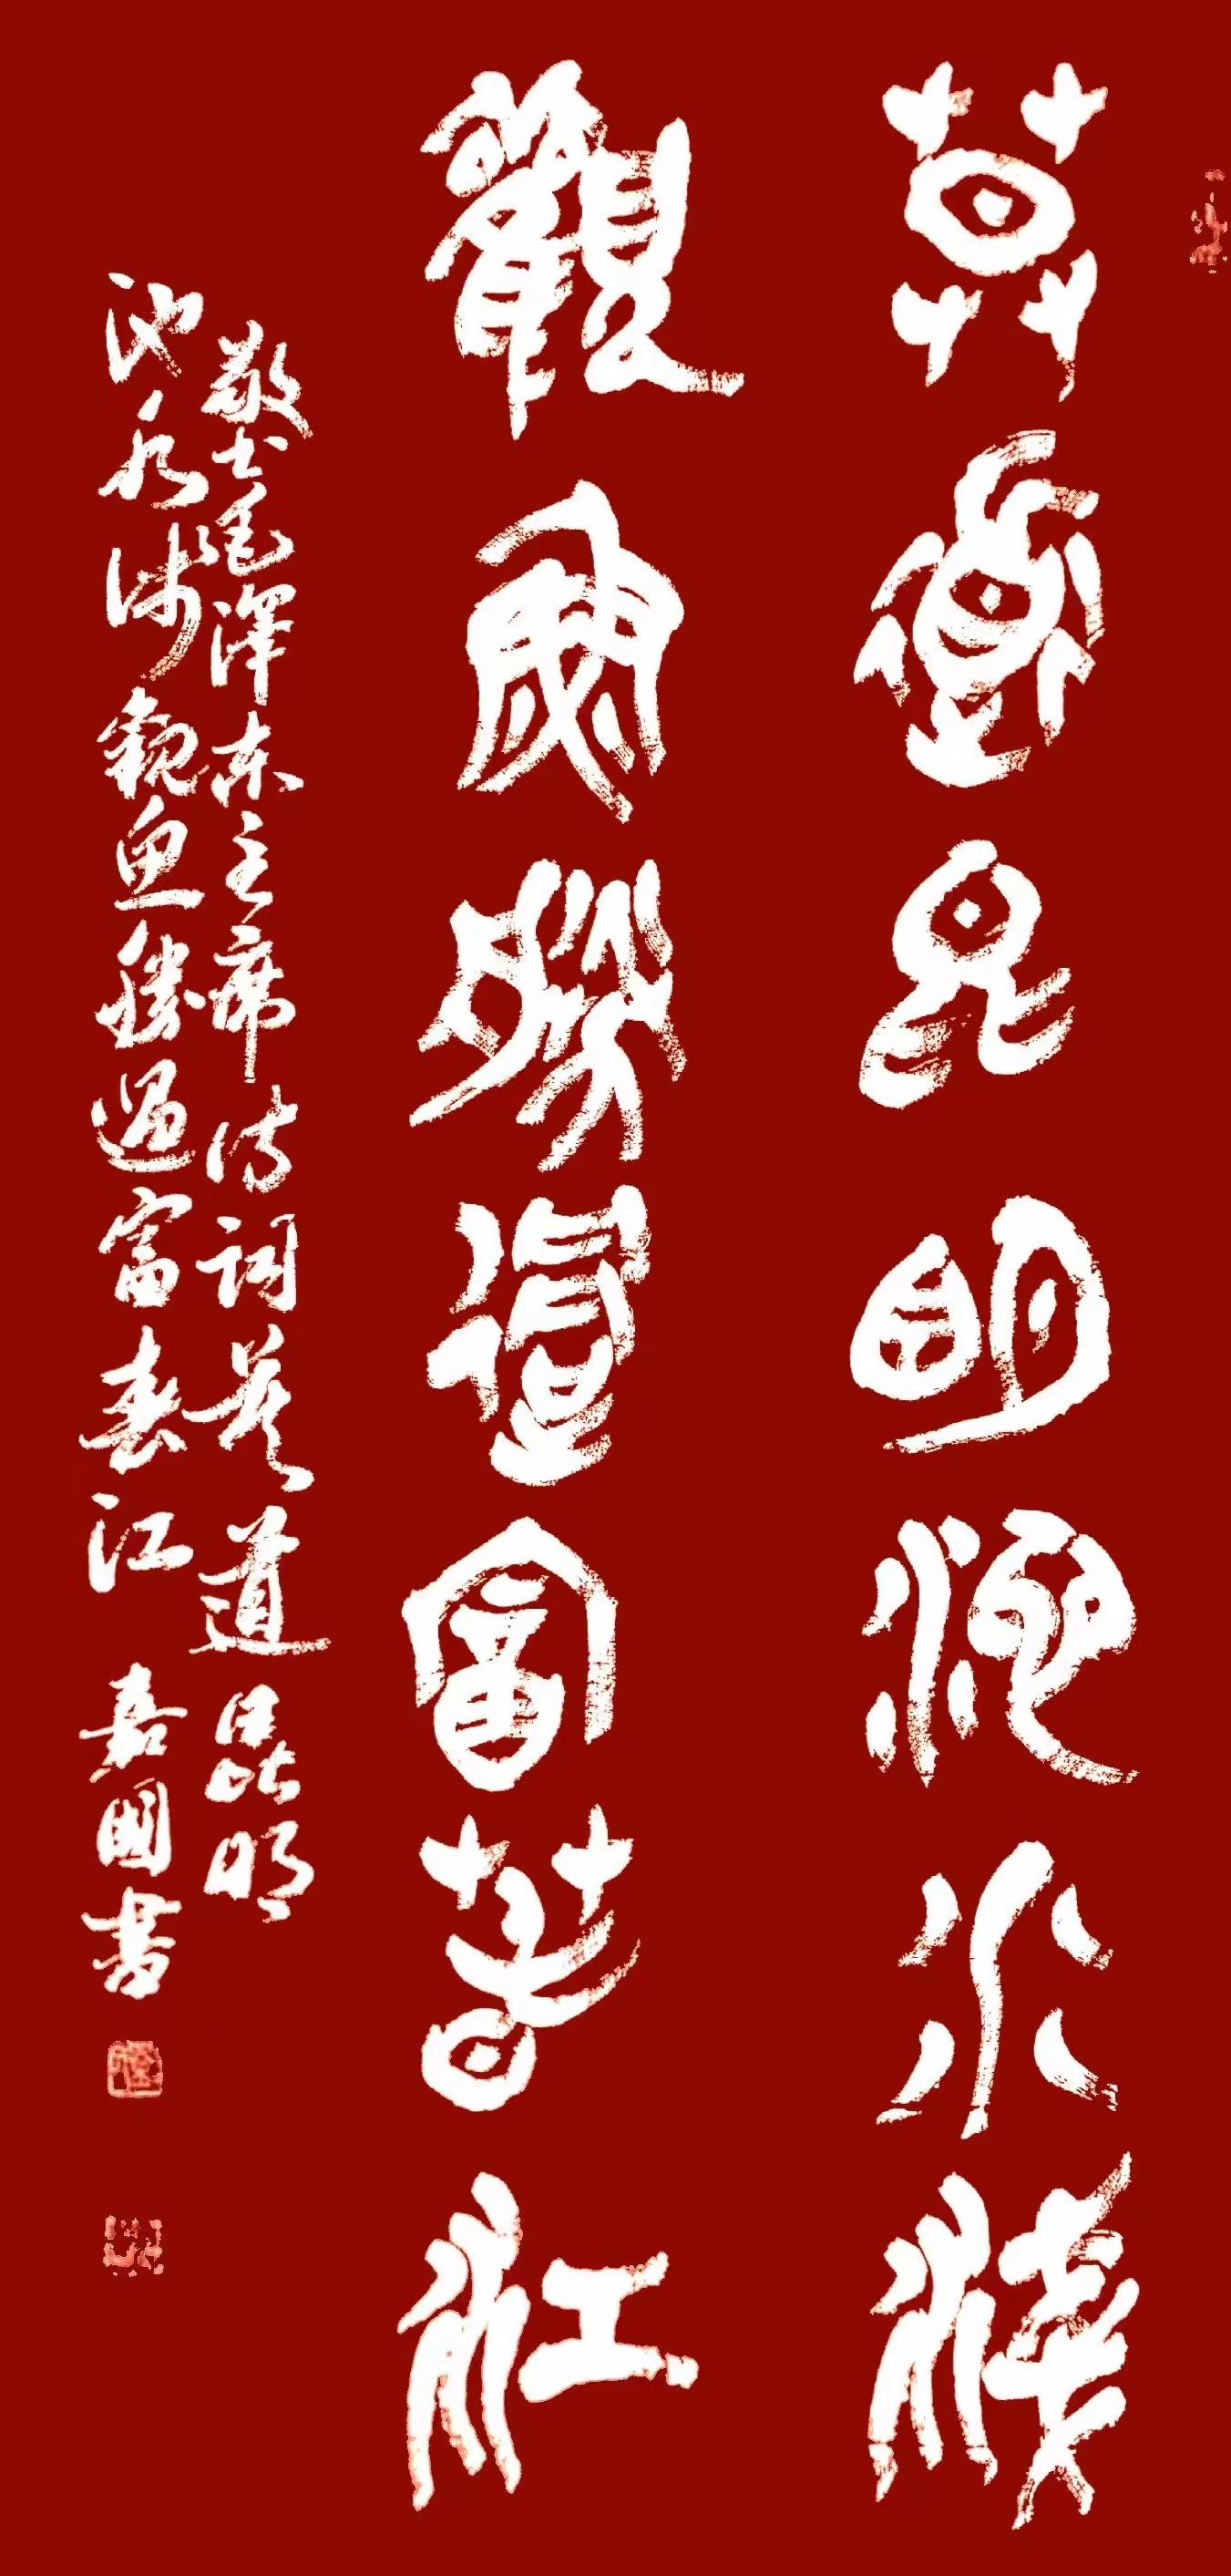 莫道昆明池水淺
觀魚勝過富春江
敬書毛澤東主席詩詞莫道昆明
池水淺觀魚勝過富春江 嘉國書